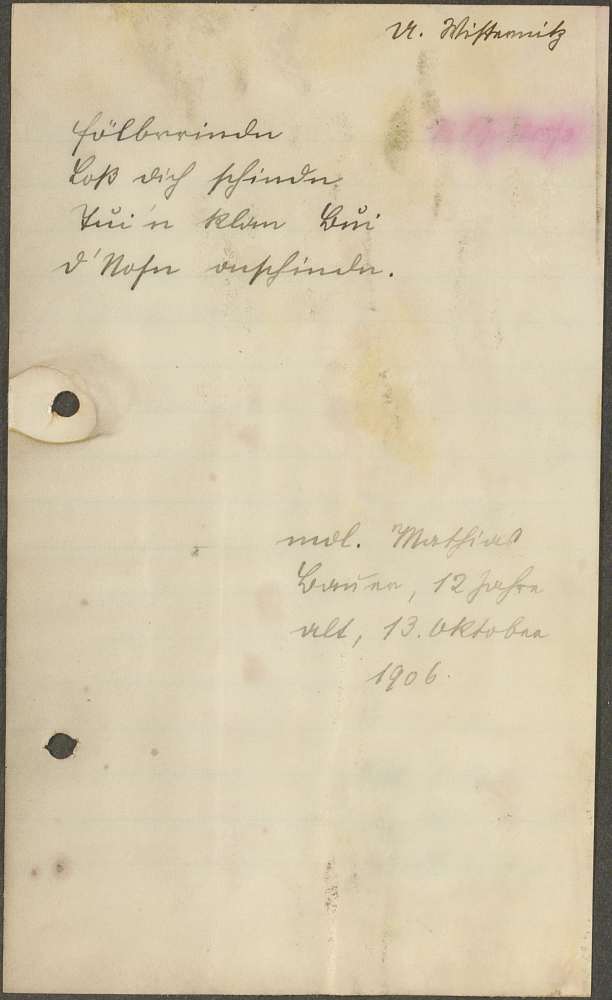 U. Wisternitz
Fölbrrinde
Loß dich schinde
Tui'n klan Bui
d'Nosn onschindn.
mdl. Mathias
Bauer, 12 Jahre
alt, 13. Oktober
1906.